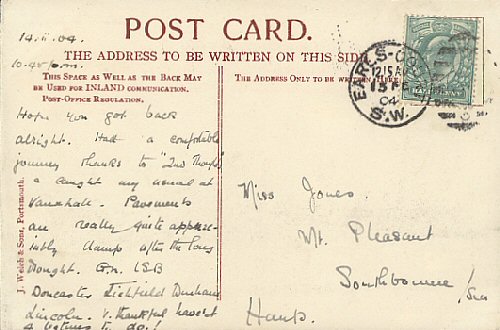 POST CARD.
THE ADDRESS TO BE WRITTEN ON THIS SIDE
14.ii.04.
10.40 p.m.
THIS SPACE AS WELL AS THE BACK MAY
BE USED FOR INLAND COMMUNICATION.
POST-OFFICE REGULATION.
Hope you got back
alright. Had a comfortable
journey thanks to "2nd
& caught my usual at
Vauxhall. Pavements
are really quite appreci-
damp after the long
Drought. G.N. LSB
Doncaster Lichfield Durham
Lincoln. V. thankful haven't
a to do!
J. Welch & Sons, Portsmouth.
THE ADDRESS ONLY TO BE WRITTEN HERE
EARLS-CO
12.15 A
04
S.W.
Miss Jones.
Mt. Pleasant
Southbourne
Hants.